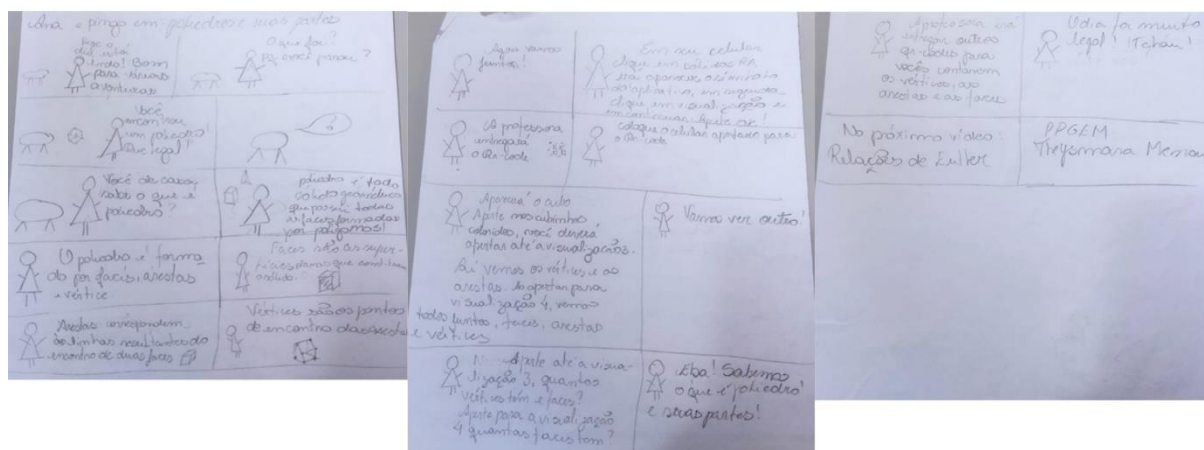 Ana e pingo em poliedros e suas partes
dia está
lindo! Bom
para várias
aventuras
O que foi?
você parou?
Você
encontrou
um poliedro!
Que legal!
?
Você de casa,
sabe o que é
poliedro?
poliedro é todo
sólido geométrico
que possui todas
as faces formadas
por polígonos!
O poliedro é forma
do por faces, arestas
e vértice
Faces são as super-
fícies planas que constituem
o sólido.
Arestas correspondem
às linhas resultantes do
encontro de duas faces
Vértices são os pontos
de encontro das arestas
Agora vamos
juntos!
Em seu celular
clique em sólidos RA
vai aparecer o símbolo
do aplicativo, em seguida
clique em visualização e
A professora
entregará
o Qr-code
coloque o celular apontado para
o Qr-code
Aparecerá o cubo
Aperte nos cubinhos
coloridos, você deverá
apertar até a visualização.
Aí vemos os vértices e as
arestas. Ao apertar para
visualização 4, vemos
todos juntos, faces, arestas
e vértices
Vamos ver outro!
Aperte até a visua-
lização 3, quantos
vértices tem e faces?
Aperte para a visualização
4 quantas faces tem?
Eba! Sabemos
o que é poliedro
e suas partes!
A professora irá
entregar outros
qr-codes para
vocês contarem
os vértices, as
arestas e as faces
O dia foi muito
legal! Tchau!
No próximo vídeo:
Relações de Euller
PPGEM
Theysmara